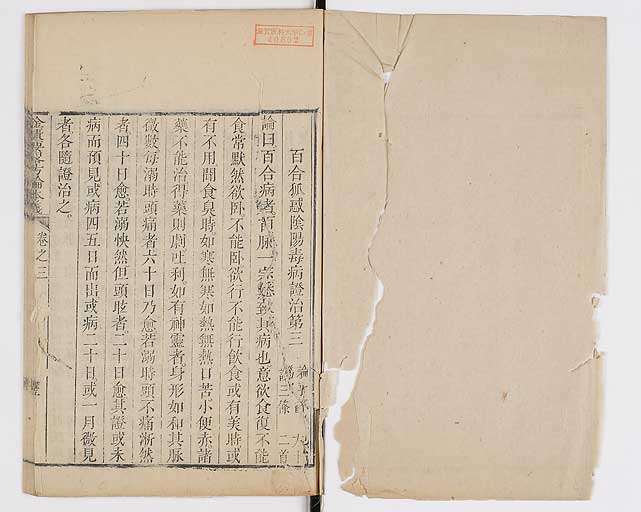 百合狐惑陰陽毒病證治第三
論曰百合病者百脉一宗悉致其病也意欲食復不能
食常默然欲卧不能卧欲行不能行飲食或有美時或
有不用聞食臭時如寒無寒如熱無熱口苦小便赤諸
藥不能治得藥則劇吐利如有神靈者身形如和其脉
微數每溺時頭痛者六十日乃愈若溺時頭不痛淅然
者四十日愈若溺快然但頭眩者二十日愈其證或未
病而預見或病四五日而出或病二十日或一月微見
者各隨證治之
卷之三